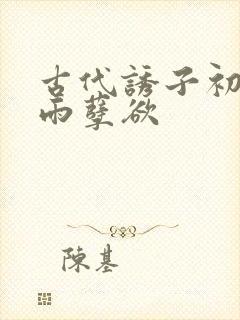 古代誘子初
雨孽欲
陳基